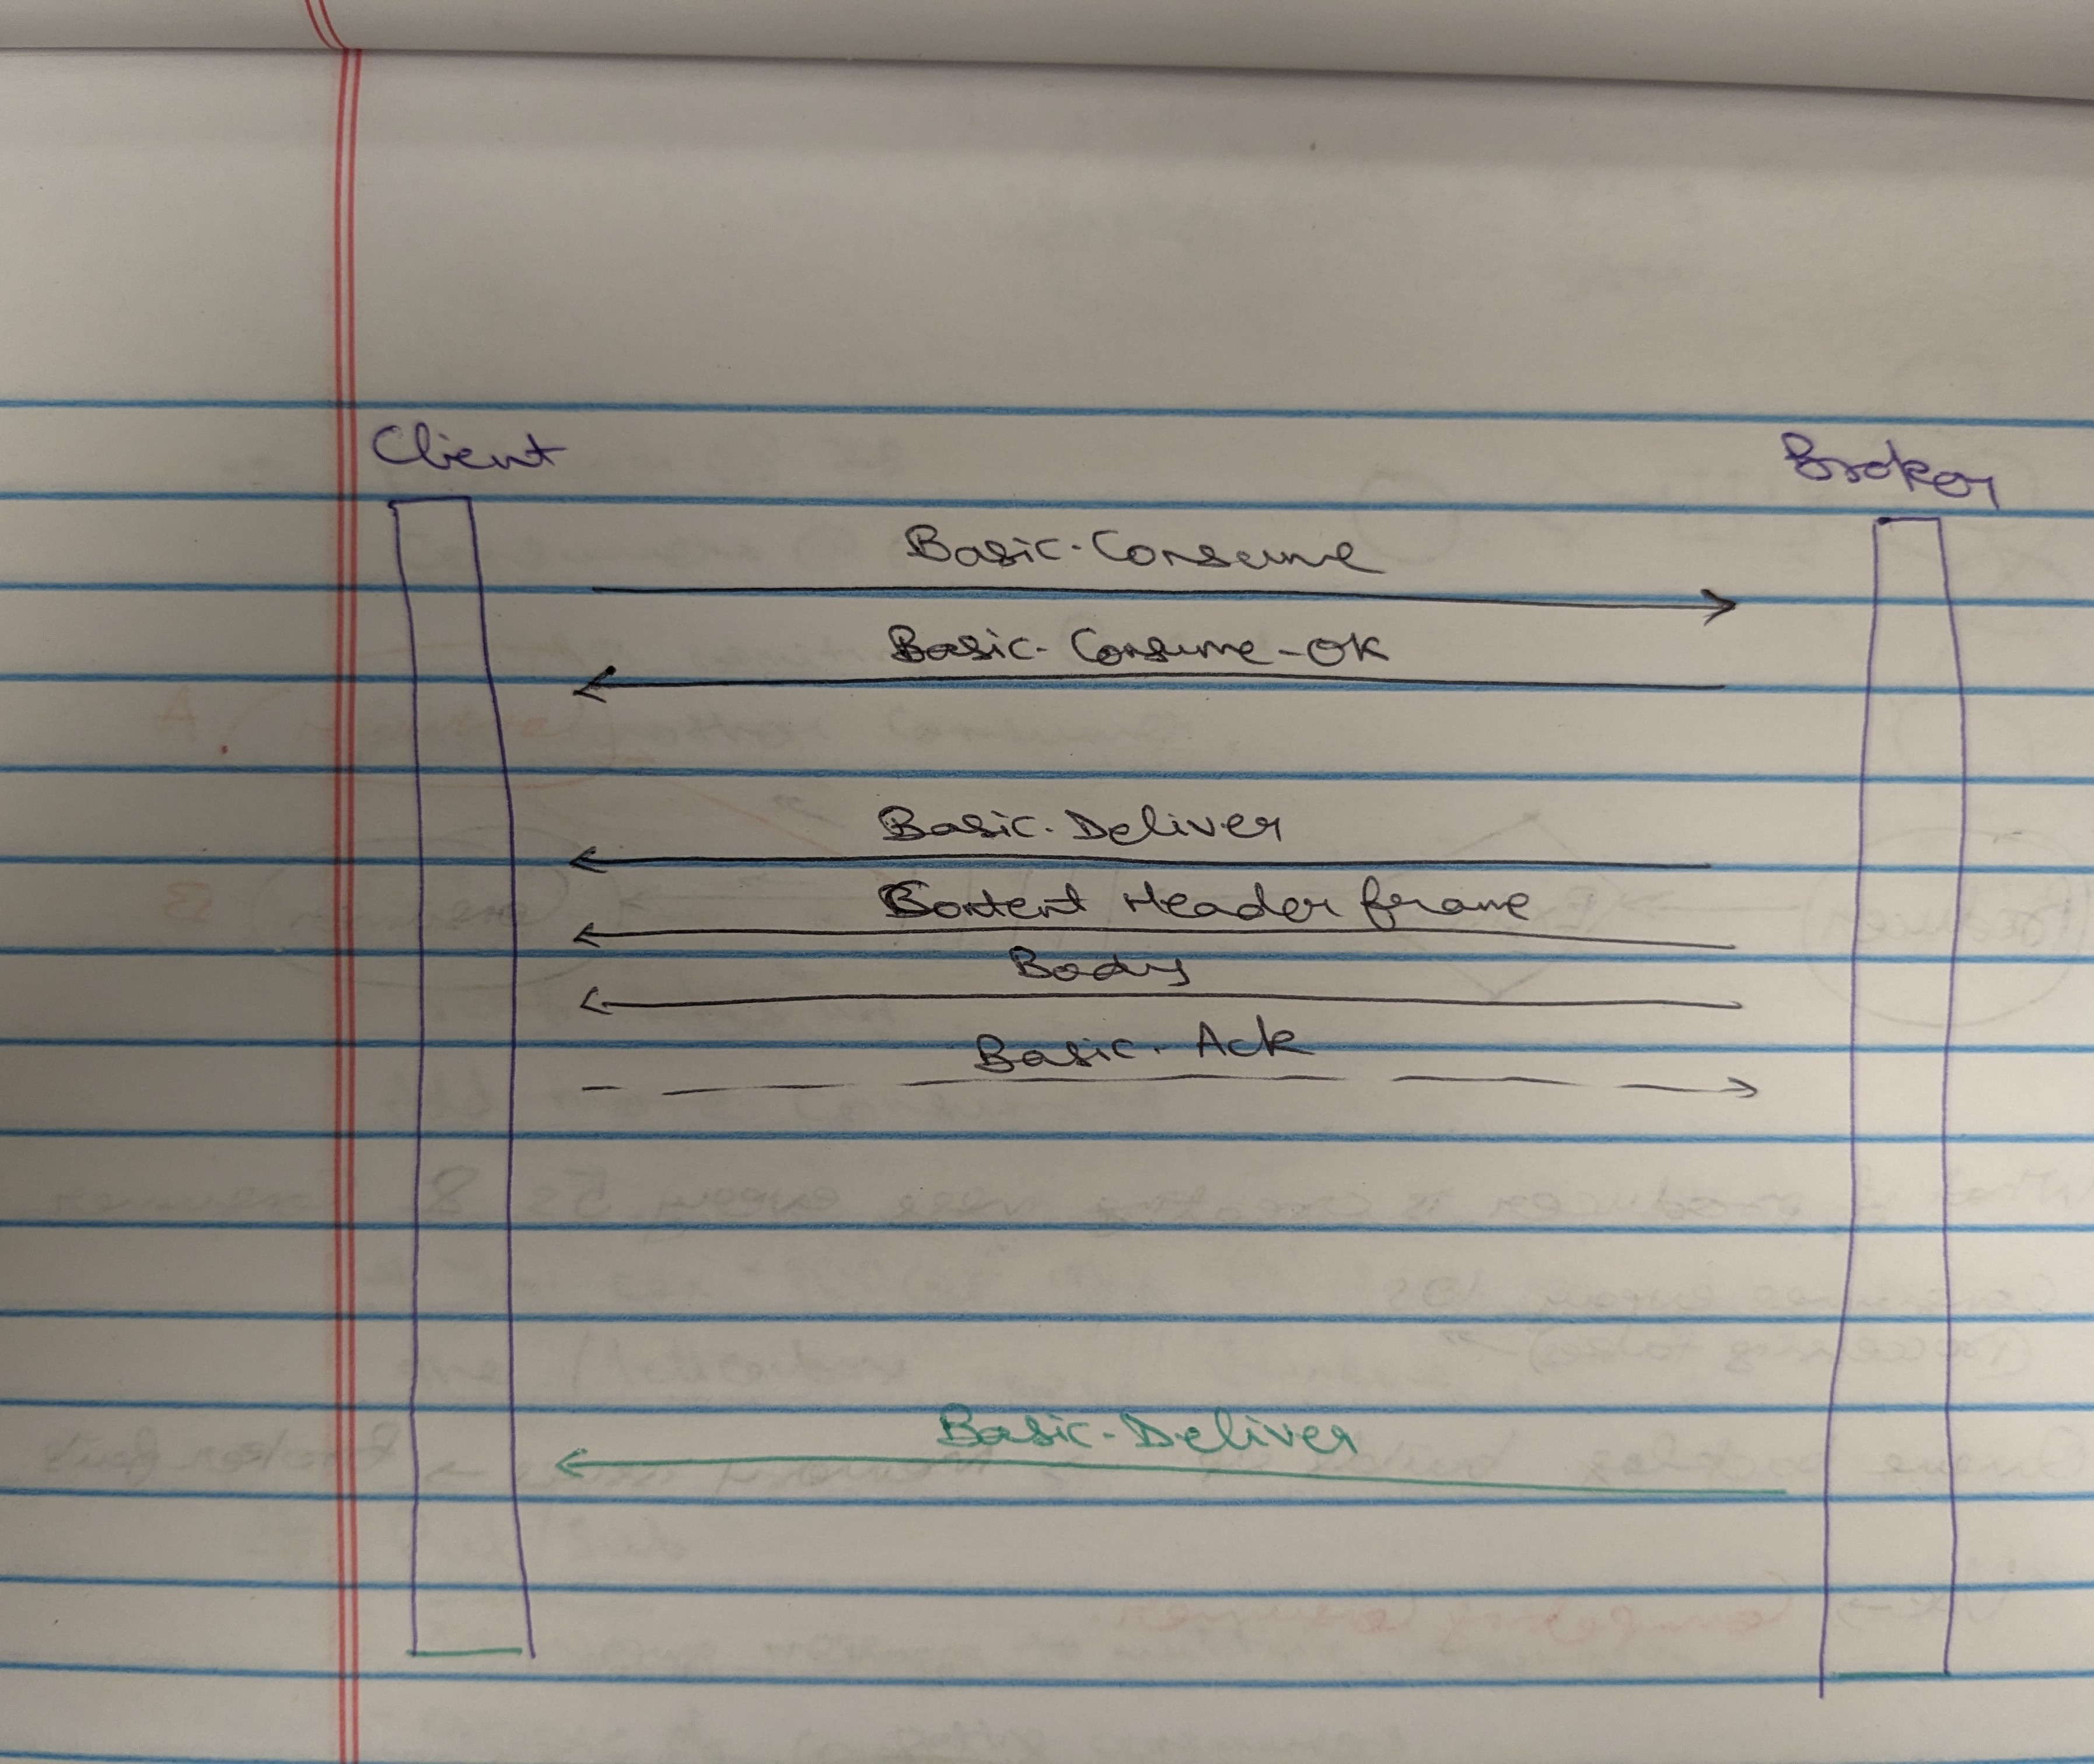 Client
Broker
Basic.Consume
Basic.Consume-OK
Basic.Deliver
Content Header frame
Body
Basic.Ack
Basic.Deliver